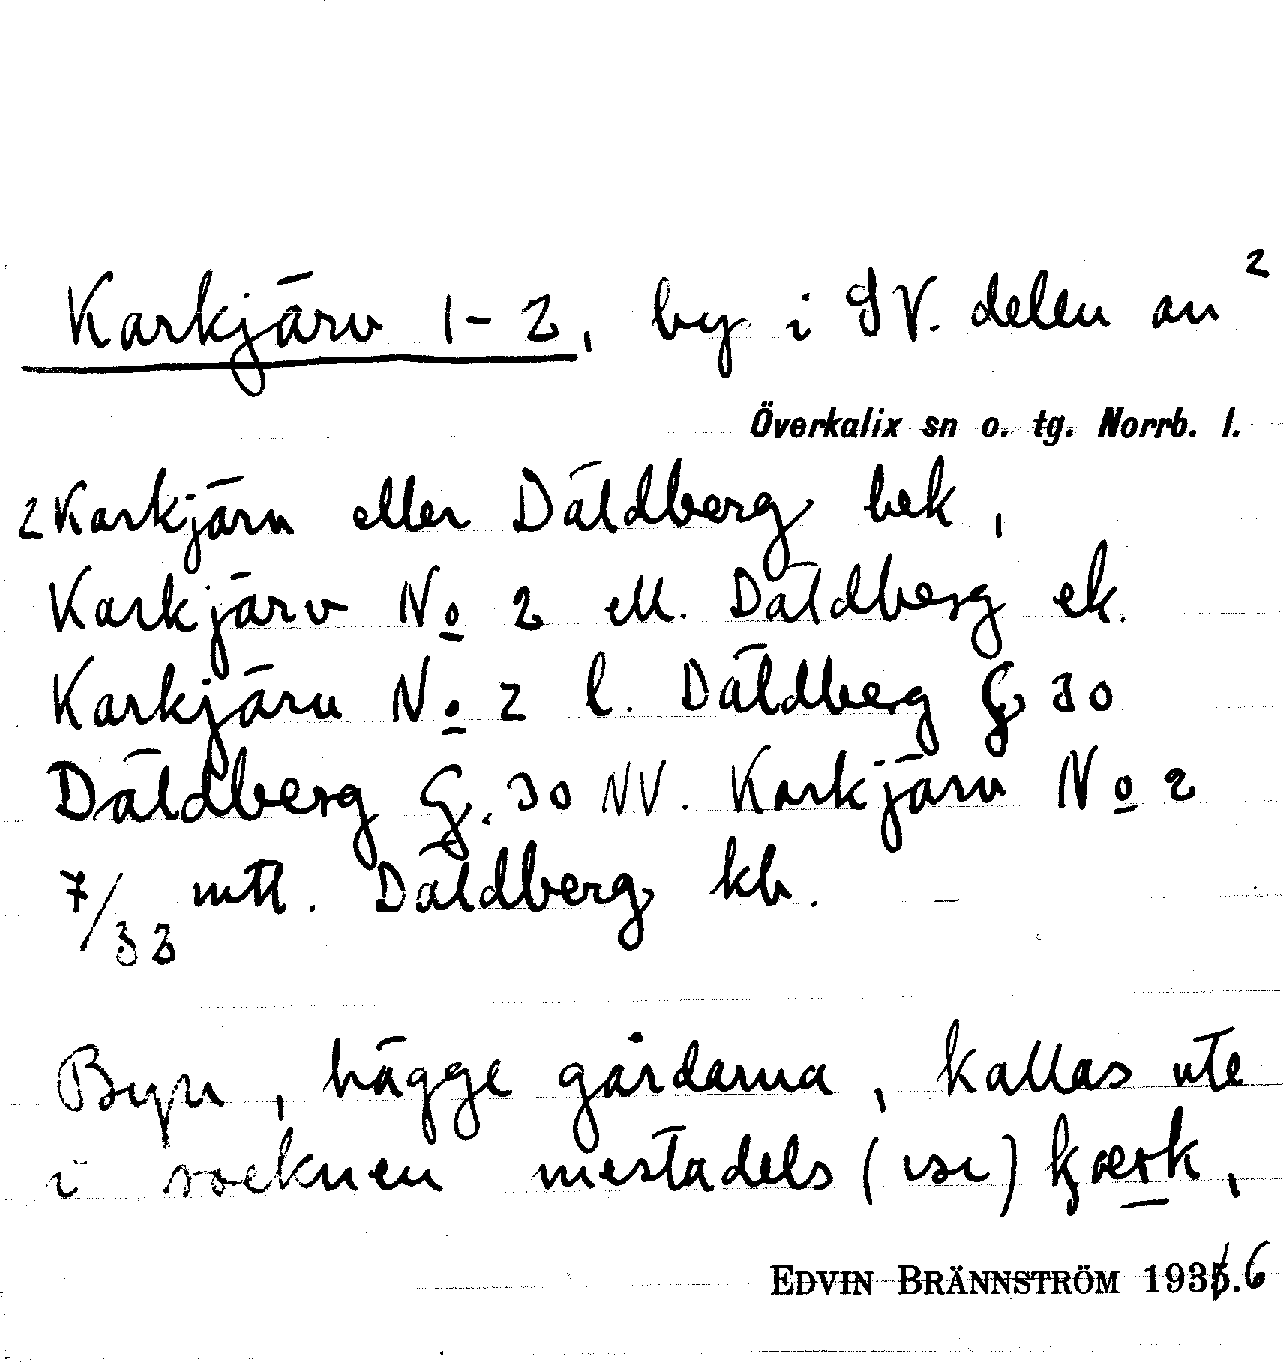 Karkjärv 1-2, by i SV. delen av 2
Överkalix sn o. tg. Norrb. l.
2 Karkjärv eller Däldberg bek,
Karkjärv No 2 ell. Däldberg ek.
Karkjärv No 2 l. Däldbeg G 30
Däldberg G. 30 NV. Karkjärv No 2
7/33 mtl. Däldberg kb. –
Byn, bägge gårdarna, kallas ute
i socknen mestadels
EDVIN BRÄNNSTRÖM 1936